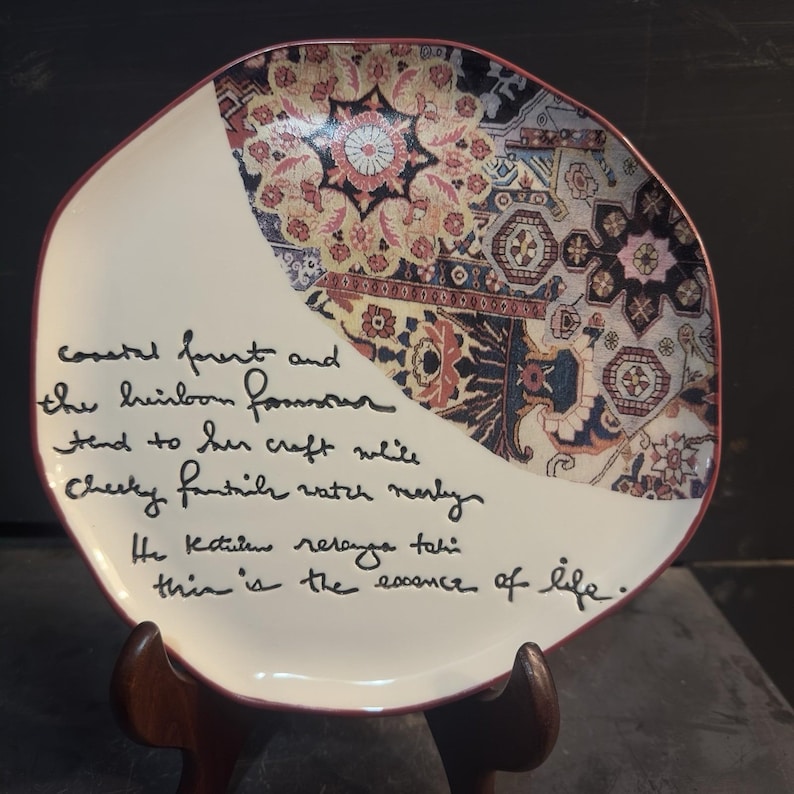 coastal forest and
the heirloom
tend to her craft while
cheeky fantails watch nearby
He
this is the essence of life.